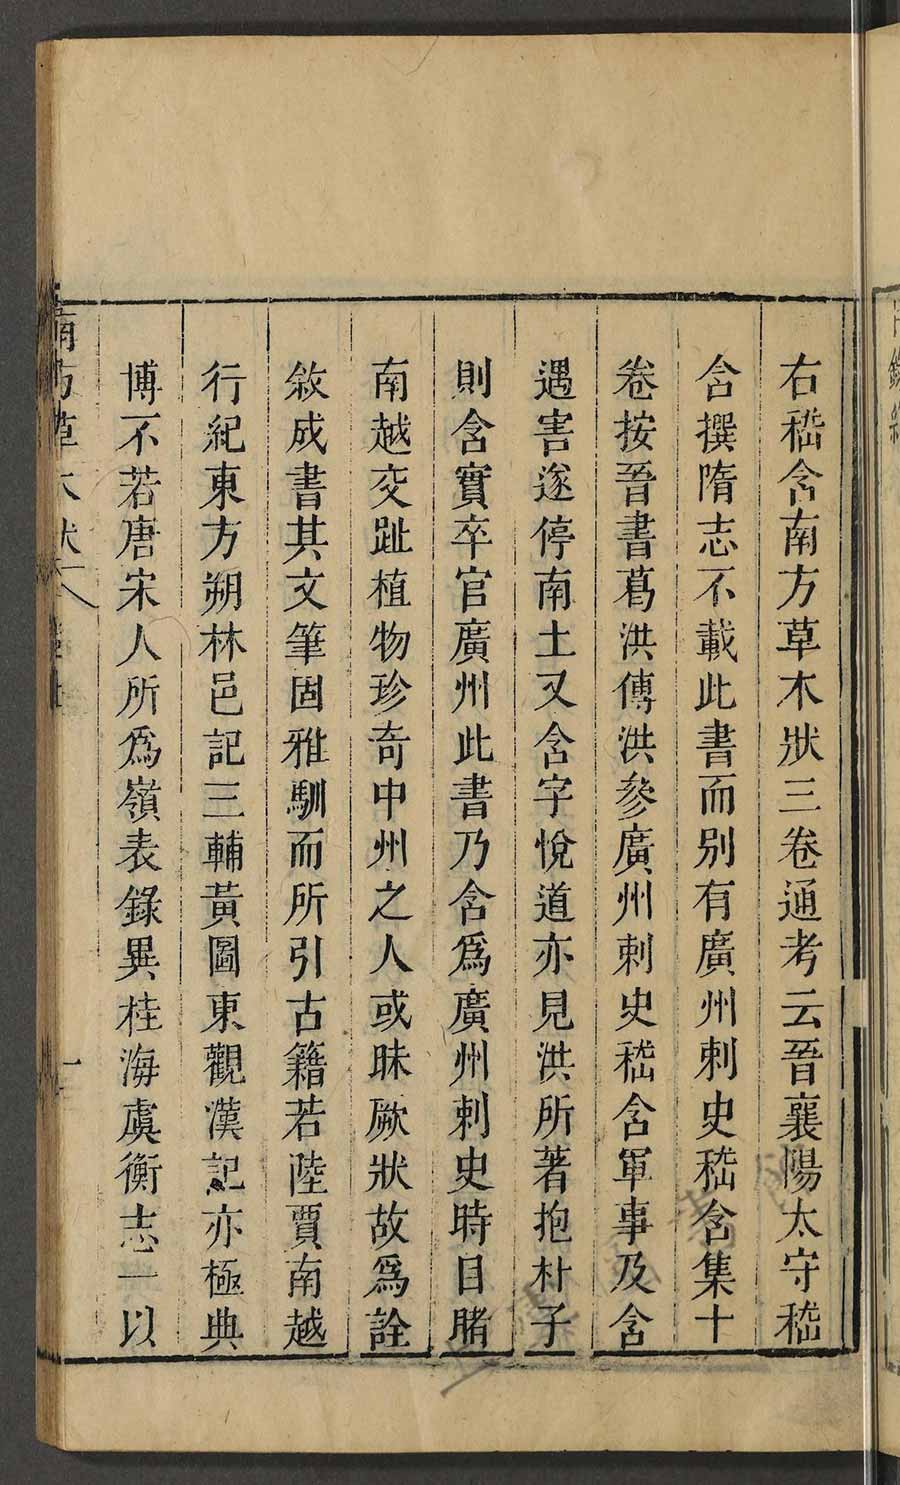 右嵇含南方草木狀三卷通考云晉襄陽太守嵇
含撰隋志不載此書而別有廣州刺史嵇含集十
卷按晉書葛洪傳洪參廣州刺史嵇含軍事及含
遇害遂停南土又含字悅道亦見洪所著抱朴子
則含實卒官廣州此書乃含爲廣州刺史時目睹
南越交趾植物珍奇中州之人或昧厥狀故爲詮
敘成書其文筆固雅馴而所引古籍若陸賈南越
行紀東方朔林邑記三輔黃圖東觀漢記亦極典
博不若唐宋人所爲嶺表錄異桂海虞衡志一以
南方草木狀